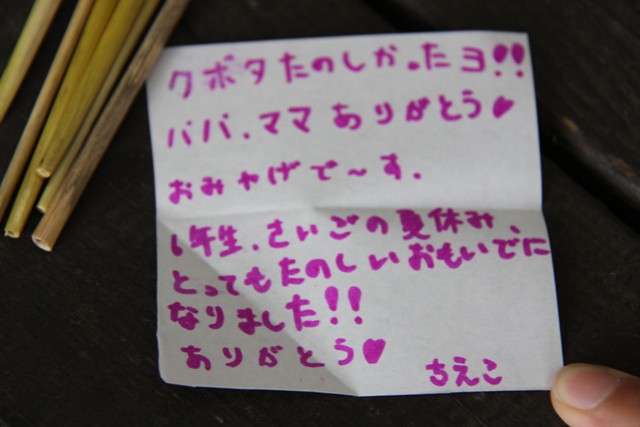 クボタたのしかったヨ!!
パパ、ママ ありがとう♥
おみやげで〜す.
6年生、さいごの夏休み、
とってもたのしいおもいでに
なりました!!
ありがとう♥
ちえこ